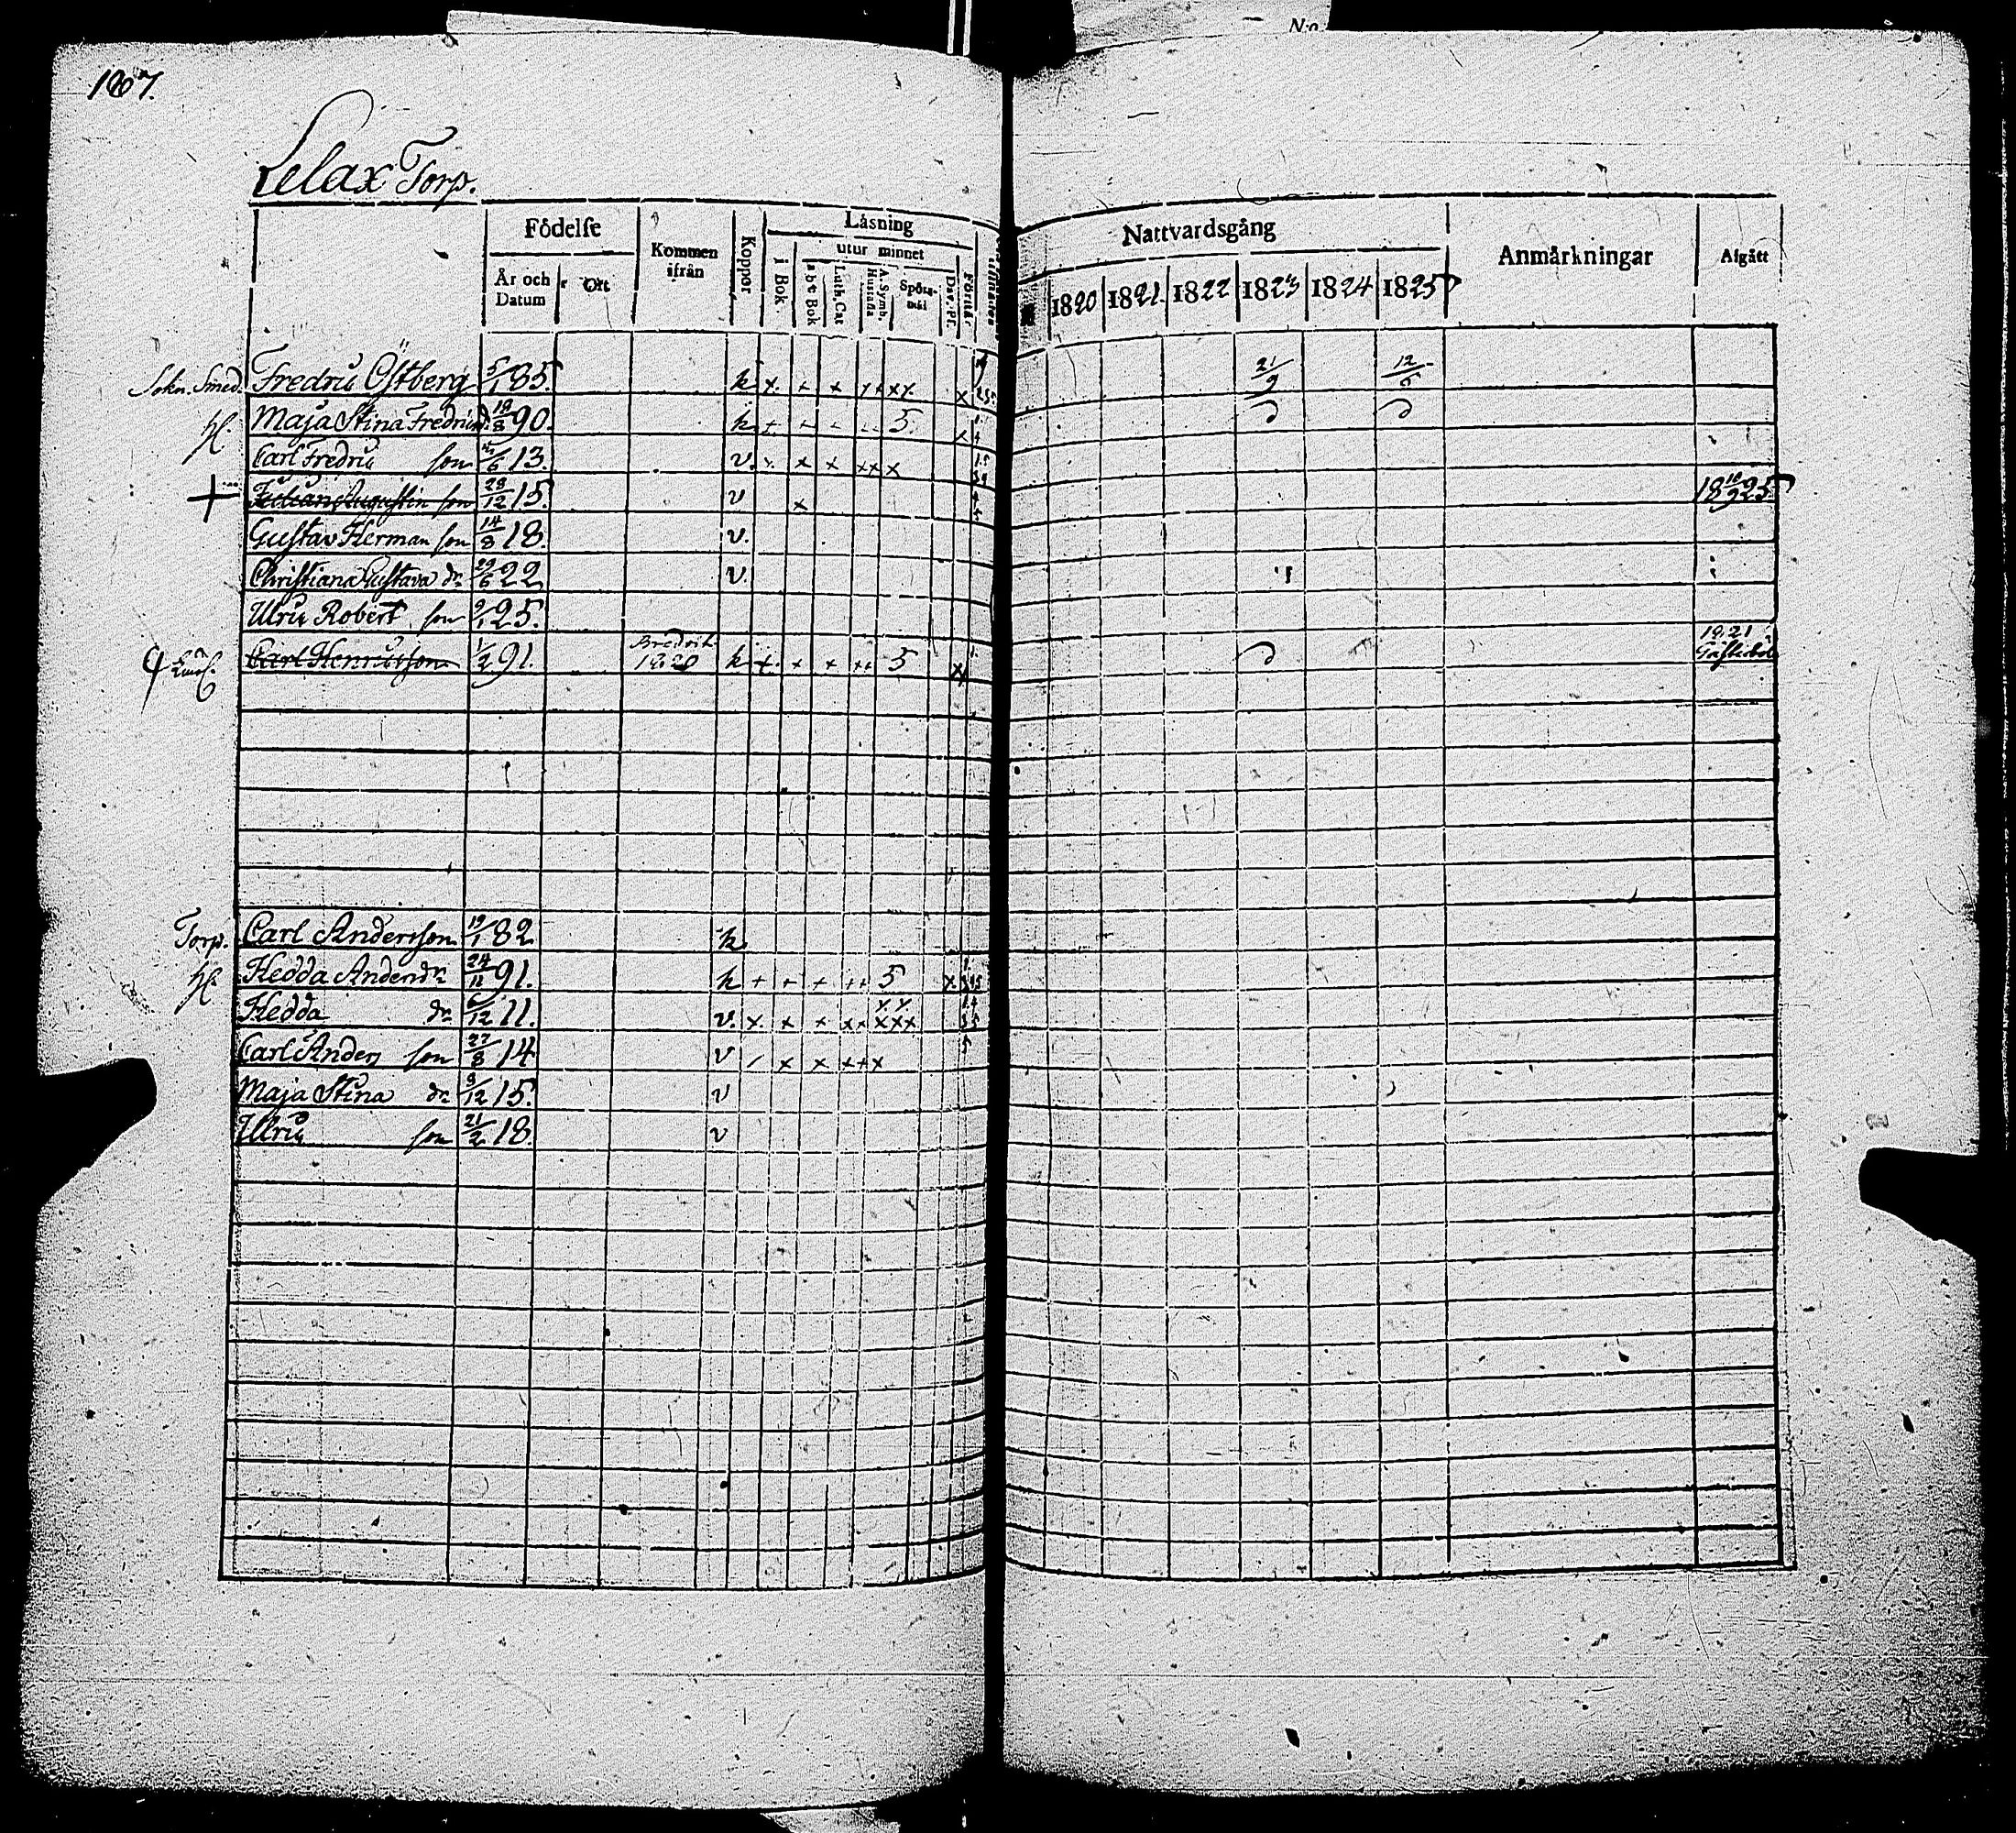 N:o
187.
Lelax Torp.
Födelse
Kommen ifrån
Koppor
Läsning
utur minnet
Nattvardsgång
Anmärkningar
Afgått
År och Datum
Ort
i Bok.
a b c Bok
Luth. Cat
A. Symb. Hustafla
Spörsmål
Dav. Ps.
Förstår
1820 1821. 1822 1823 1824 1825
Sokn. Smed. Fredric Östberg 5/1 85. k x. + x x x x x. x 21/9 12/6
H. Maja Stina Fredricsd. 18/8 90. k + + 5. x
Carl Fredric son 13. v. x x x x x x
+ Augustin son 28/12 15. v x 18 10/9 25
Gustav Herman son 14/8 18. v.
Christiana Gustava dr. 29/6 22 v.
Ulric Robert son 9/1 25.
Carl Henricsson 1/2 91. 1820 k + + + ++ 5 x 1821
Torp. Carl Andersson 19/1 82 k
H. Hedda Andersdr. 24/11 91. k + + + ++ 5 x
Hedda dr. 6/12 11. v. x. x x x x x x x
Carl Anders son 27/8 14 v / x x x + x
Maja Stina dr. 9/12 15. v
Ulric son 21/2 18. v